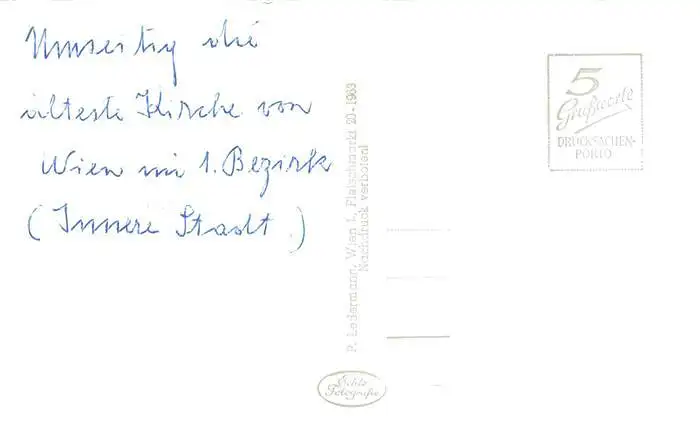 Umseitig die
älteste Kirche von
Wien im 1. Bezirk
(Innere Stadt.)
P. Ledermann, Wien I., Fleischmarkt 20 - 1963
Nachdruck verboten!
5
Grußworte
DRUCKSACHEN-
PORTO
Echte
Fotografie